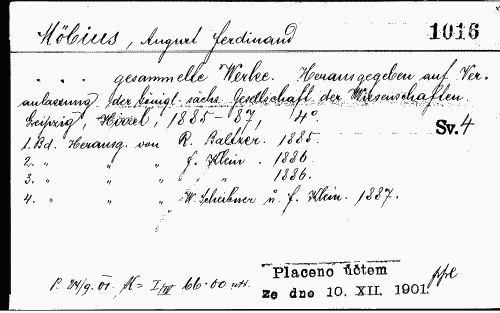 Möbius, August Ferdinand 1016
. . . gesammelte Werke. Herausgegeben auf Ver-
anlassung der königl. sächs. Gesellschaft der Wissenschaften.
Leipzig, Hirzel, 1885-87, 4°
Sv. 4
1. Bd. Herausg. von R. Baltzer. 1885.
2. " " " F. Klein. 1886.
3. " " " " 1886.
4. " " " W. Scheibner u. F. Klein. 1887.
P. 24/9. 01. K = I/IV 66·00
Placeno účtem
ze dne 10. XII. 1901